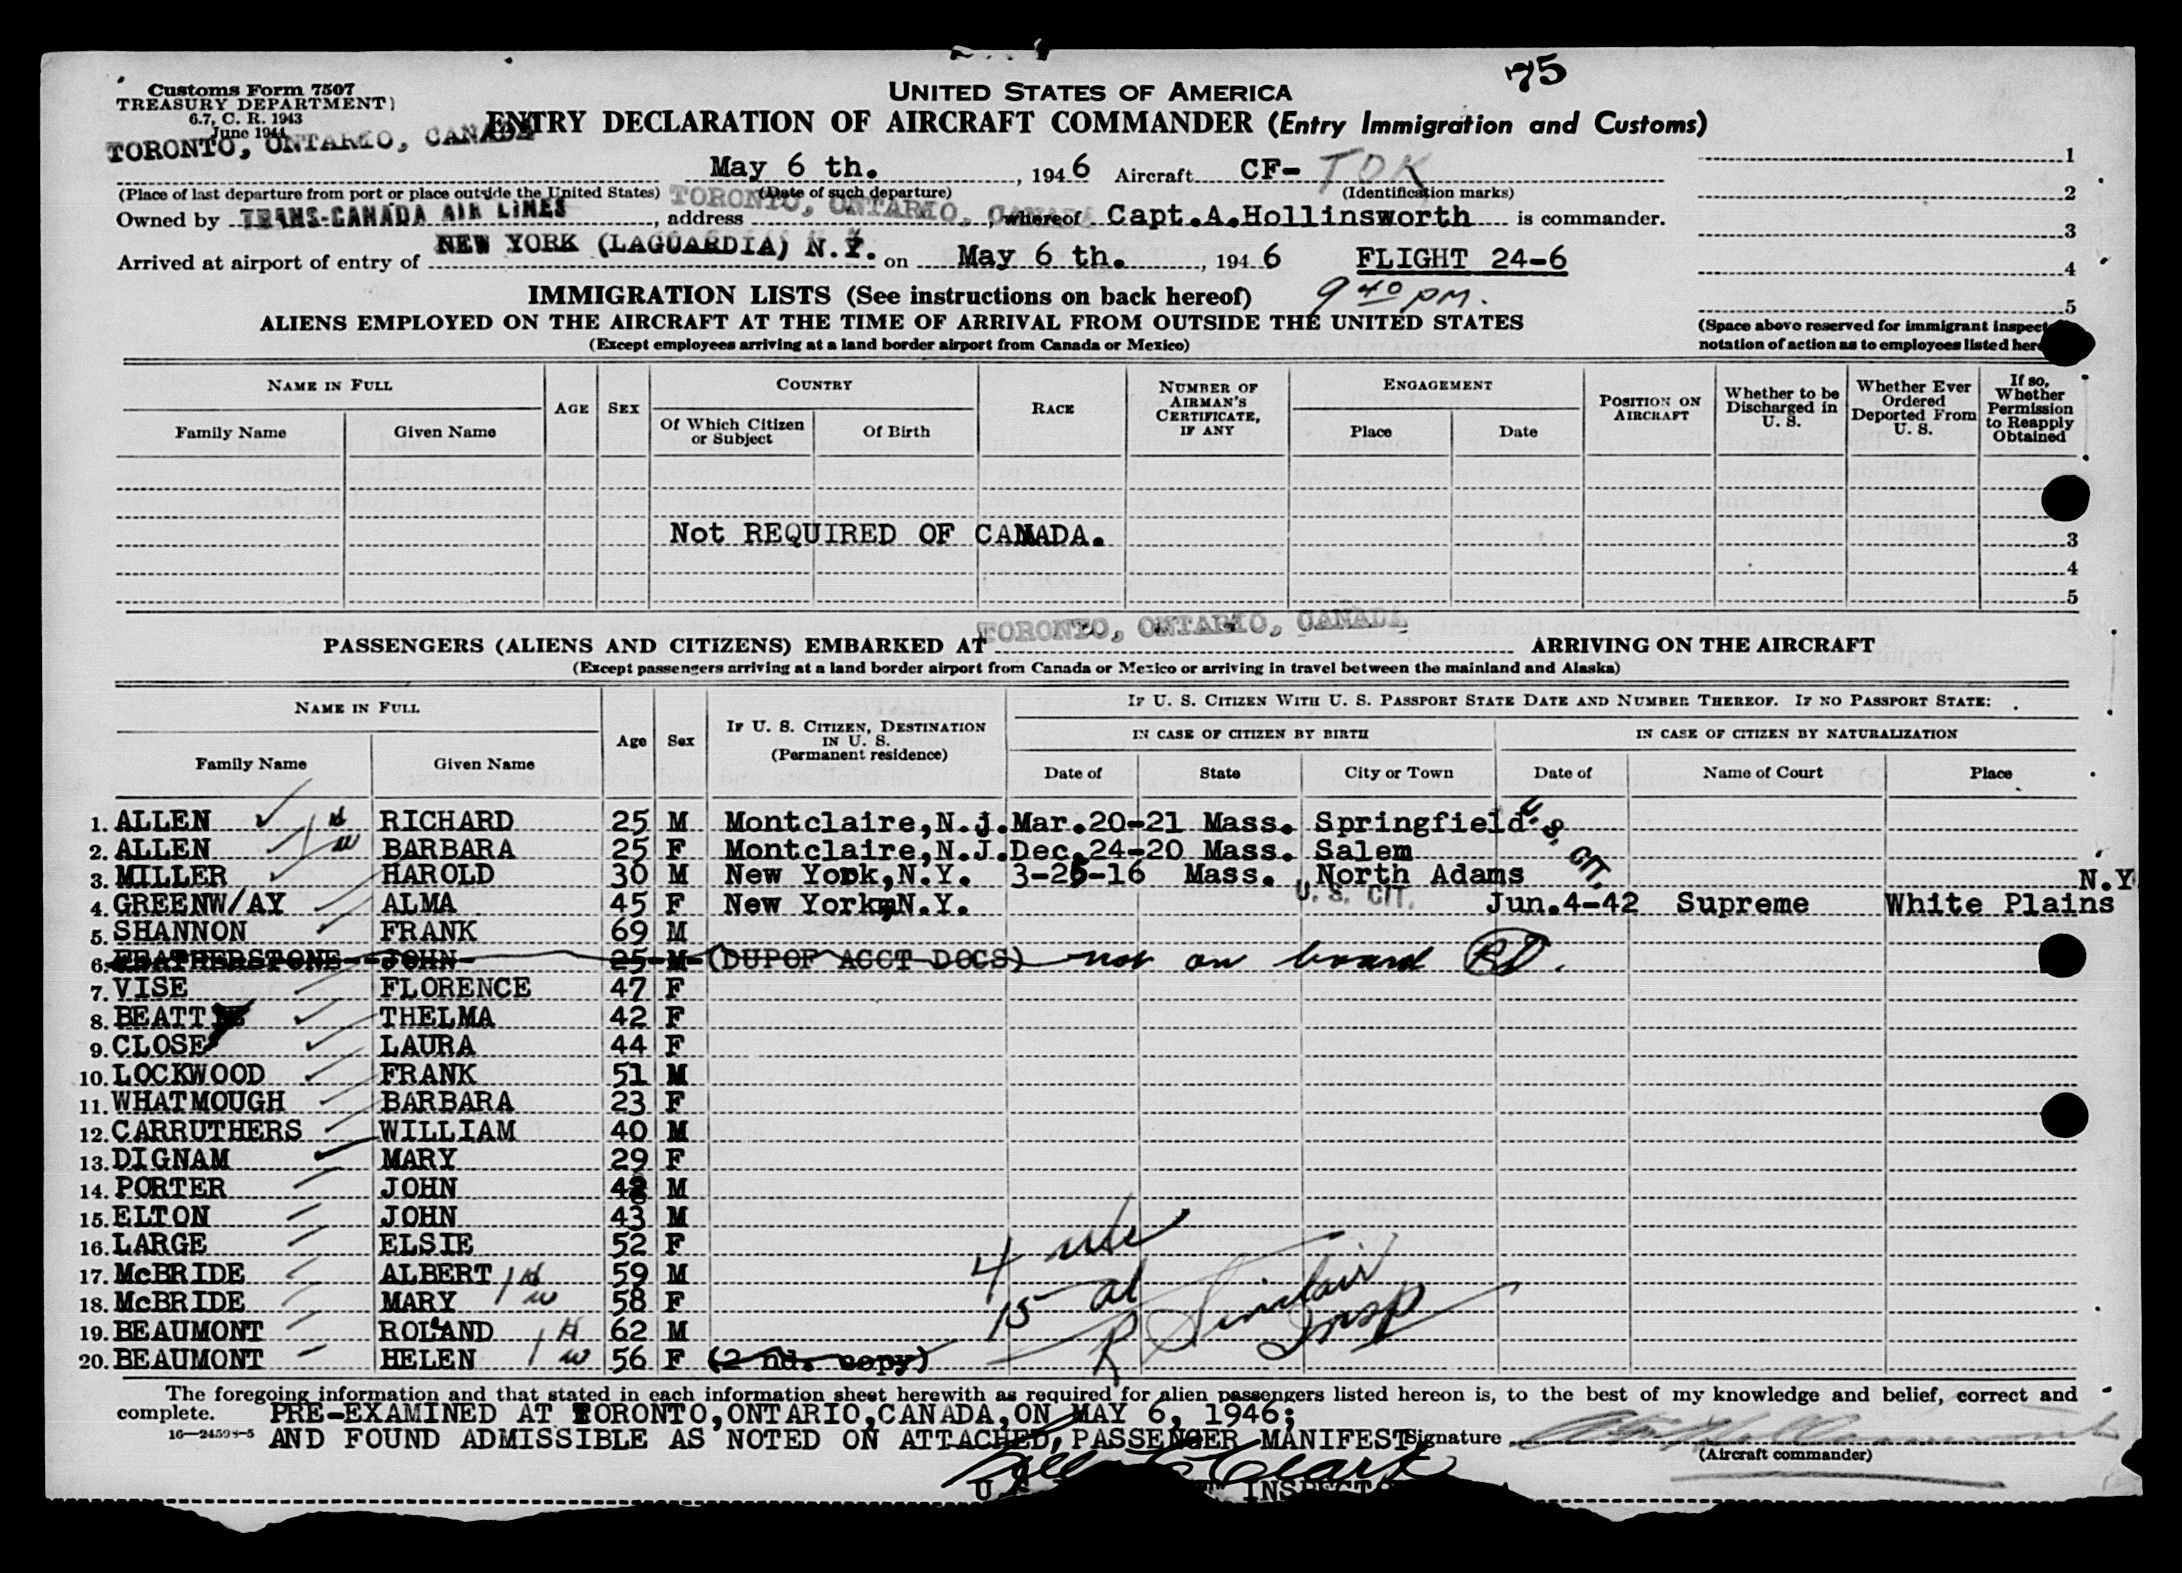 75
Customs Form 7507
TREASURY DEPARTMENT
6.7, C. R. 1943
June 1944
UNITED STATES OF AMERICA
ENTRY DECLARATION OF AIRCRAFT COMMANDER (Entry Immigration and Customs)
TORONTO, ONTARIO, CANADA May 6 th., 1946 Aircraft CF-TDK 1
(Place of last departure from port or place outside the United States) (Date of such departure) (Identification marks) 2
Owned by TRANS-CANADA AIR LINES, address TORONTO, ONTARIO, CANADA, whereof Capt.A.Hollinsworth is commander. 3
Arrived at airport of entry of NEW YORK (LAGUARDIA) N.Y. on May 6 th., 1946 FLIGHT 24-6 4
IMMIGRATION LISTS (See instructions on back hereof) 9 40 PM. 5
ALIENS EMPLOYED ON THE AIRCRAFT AT THE TIME OF ARRIVAL FROM OUTSIDE THE UNITED STATES
(Except employees arriving at a land border airport from Canada or Mexico)
(Space above reserved for immigrant
notation of action as to employees listed
NAME IN FULL
Family Name Given Name
AGE SEX
COUNTRY
Of Which Citizen or Subject Of Birth
RACE
NUMBER OF AIRMAN'S CERTIFICATE, IF ANY
ENGAGEMENT
Place Date
POSITION ON AIRCRAFT
Whether to be Discharged in U. S.
Whether Ever Ordered Deported From U. S.
If so, Whether Permission to Reapply Obtained
Not REQUIRED OF CANADA. 3
4
5
PASSENGERS (ALIENS AND CITIZENS) EMBARKED AT TORONTO, ONTARIO, CANADA ARRIVING ON THE AIRCRAFT
(Except passengers arriving at a land border airport from Canada or Mexico or arriving in travel between the mainland and Alaska)
NAME IN FULL
Family Name Given Name
Age Sex
IF U. S. CITIZEN, DESTINATION IN U. S.
(Permanent residence)
IF U. S. CITIZEN WITH U. S. PASSPORT STATE DATE AND NUMBER THEREOF. IF NO PASSPORT STATE:
IN CASE OF CITIZEN BY BIRTH IN CASE OF CITIZEN BY NATURALIZATION
Date of State City or Town Date of Name of Court Place
1. ALLEN RICHARD 25 M Montclaire,N.J. Mar.20-21 Mass. Springfield U. S. CIT.
2. ALLEN BARBARA 25 F Montclaire,N.J. Dec.24-20 Mass. Salem
3. MILLER HAROLD 30 M New York,N.Y. 3-25-16 Mass. North Adams
4. GREENW/AY ALMA 45 F New York,N.Y. U. S. CIT. Jun.4-42 Supreme White Plains N.Y
5. SHANNON FRANK 69 M
6. FEATHERSTONE JOHN 25 M (DUPOF ACCT DOCS) not on board
7. VISE FLORENCE 47 F
8. BEATT THELMA 42 F
9. CLOSE LAURA 44 F
10. LOCKWOOD FRANK 51 M
11. WHATMOUGH BARBARA 23 F
12. CARRUTHERS WILLIAM 40 M
13. DIGNAM MARY 29 F
14. PORTER JOHN 48 M
15. ELTON JOHN 43 M
16. LARGE ELSIE 52 F
17. McBRIDE ALBERT 59 M
18. McBRIDE MARY 58 F
19. BEAUMONT ROLAND 62 M
20. BEAUMONT HELEN 56 F (2 nd. copy)
4 usc
15 al
R Sinclair
Insp
The foregoing information and that stated in each information sheet herewith as required for alien passengers listed hereon is, to the best of my knowledge and belief, correct and
complete. PRE-EXAMINED AT TORONTO,ONTARIO,CANADA,ON MAY 6, 1946;
16—24598-5 AND FOUND ADMISSIBLE AS NOTED ON ATTACHED,PASSENGER MANIFEST Signature
(Aircraft commander)